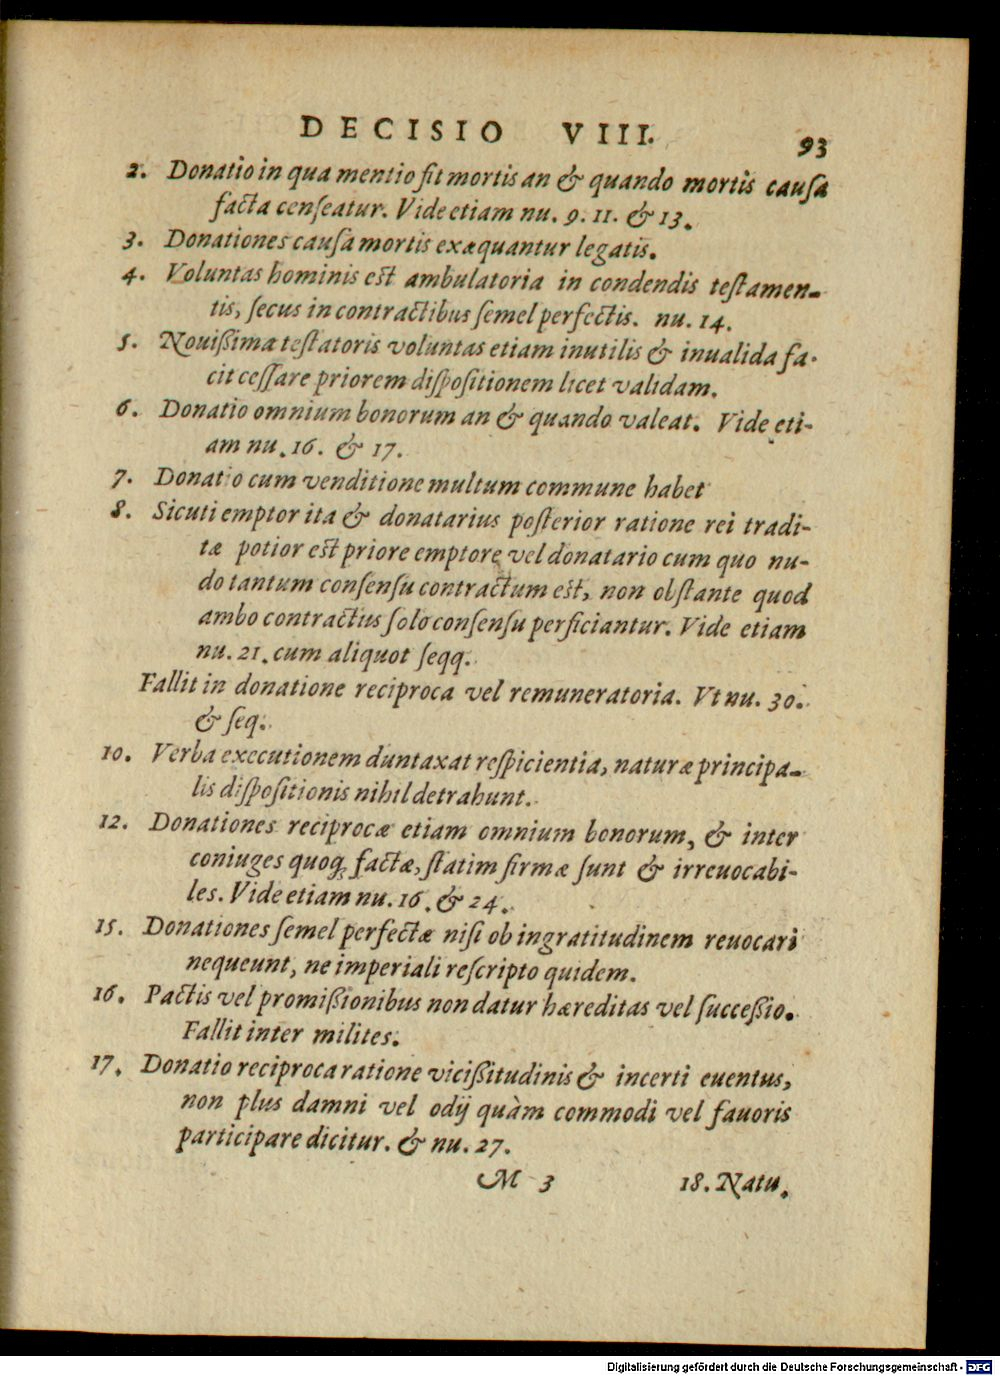 DECISIO VIII. 93
2. Donatio in qua mentio fit mortis an & quando mortis causa
facta censeatur. Vide etiam nu. 9. 11. & 13.
3. Donationes causa mortis exæquantur legatis.
4. Voluntas hominis est ambulatoria in condendis testamen-
tis, secus in contractibus semel perfectis. nu. 14.
5. Nouißimæ testatoris voluntas etiam inutilis & inualida fa-
cit cessare priorem dispositionem licet validam.
6. Donatio omnium bonorum an & quando valeat. Vide eti-
am nu. 16. & 17.
7. Donatio cum venditione multum commune habet
8. Sicuti emptor ita & donatarius posterior ratione rei tradi-
tæ potior est priore emptore vel donatario cum quo nu-
do tantum consensu contractum est, non obstante quod
ambo contractus solo consensu perficiantur. Vide etiam
nu. 21. cum aliquot seqq.
Fallit in donatione reciproca vel remuneratoria. Vt nu. 30.
& seq.
10. Verba executionem duntaxat respicientia, naturæ principa-
lis dispositionis nihil detrahunt.
12. Donationes reciprocæ etiam omnium bonorum, & inter
coniuges quoq; factæ, statim firmæ sunt & irreuocabi-
les. Vide etiam nu. 16. & 24.
15. Donationes semel perfectæ nisi ob ingratitudinem reuocari
nequeunt, ne imperiali rescripto quidem.
16. Pactis vel promißionibus non datur hæreditas vel succeßio.
Fallit inter milites.
17. Donatio reciproca ratione vicißitudinis & incerti euentus,
non plus damni vel odij quàm commodi vel fauoris
participare dicitur. & nu. 27.
M 3 18. Natu.
Digitalisierung gefördert durch die Deutsche Forschungsgemeinschaft - DFG